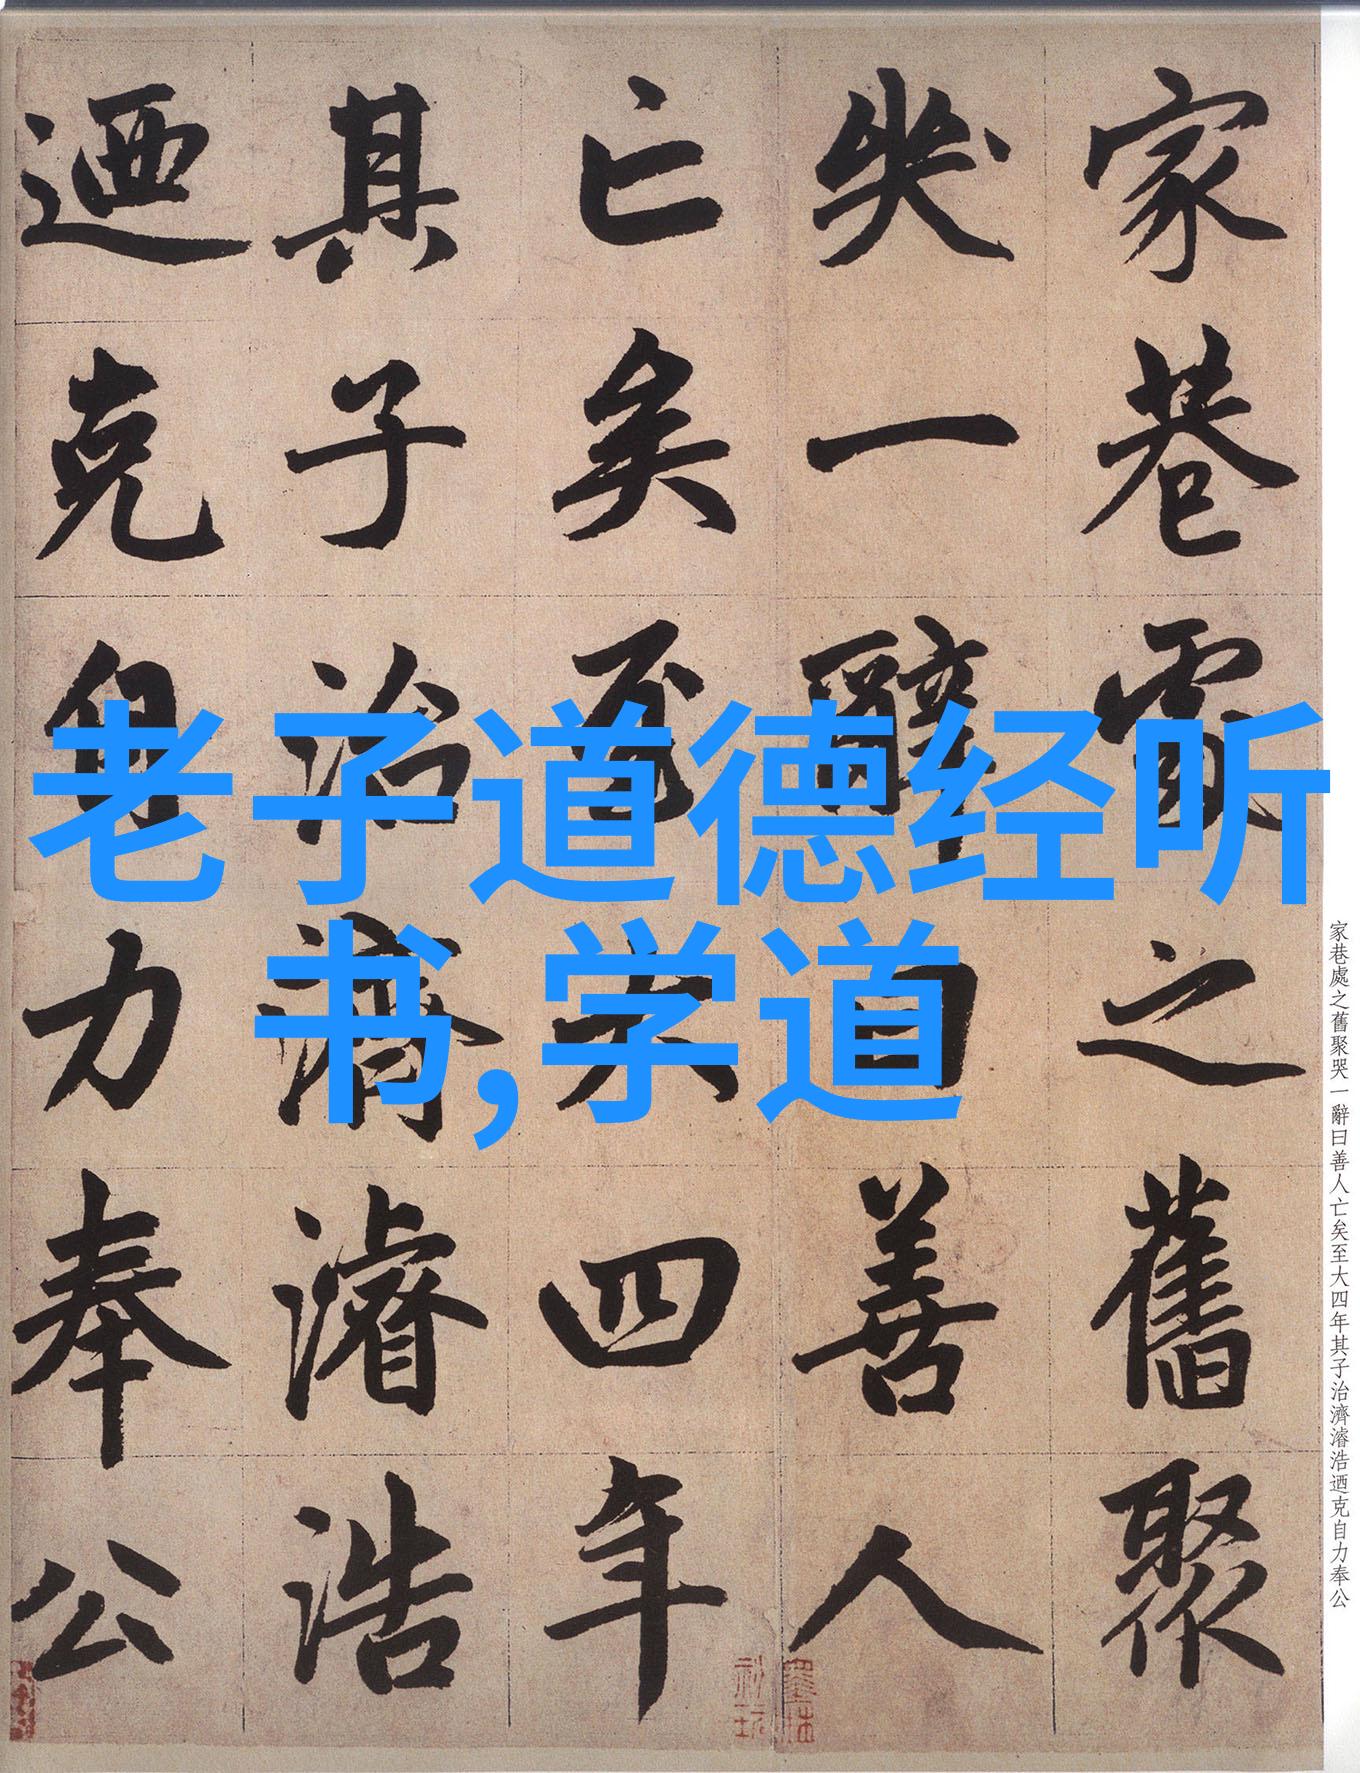 家巷處之舊聚
哭一辭曰善人
亡矣至大四年
其子治濟濬浩
迺克自力奉公
老子道德经听
书,学道
家巷處之舊聚哭一辭曰善人亡矣至大四年其子治濟濬浩迺克自力奉公